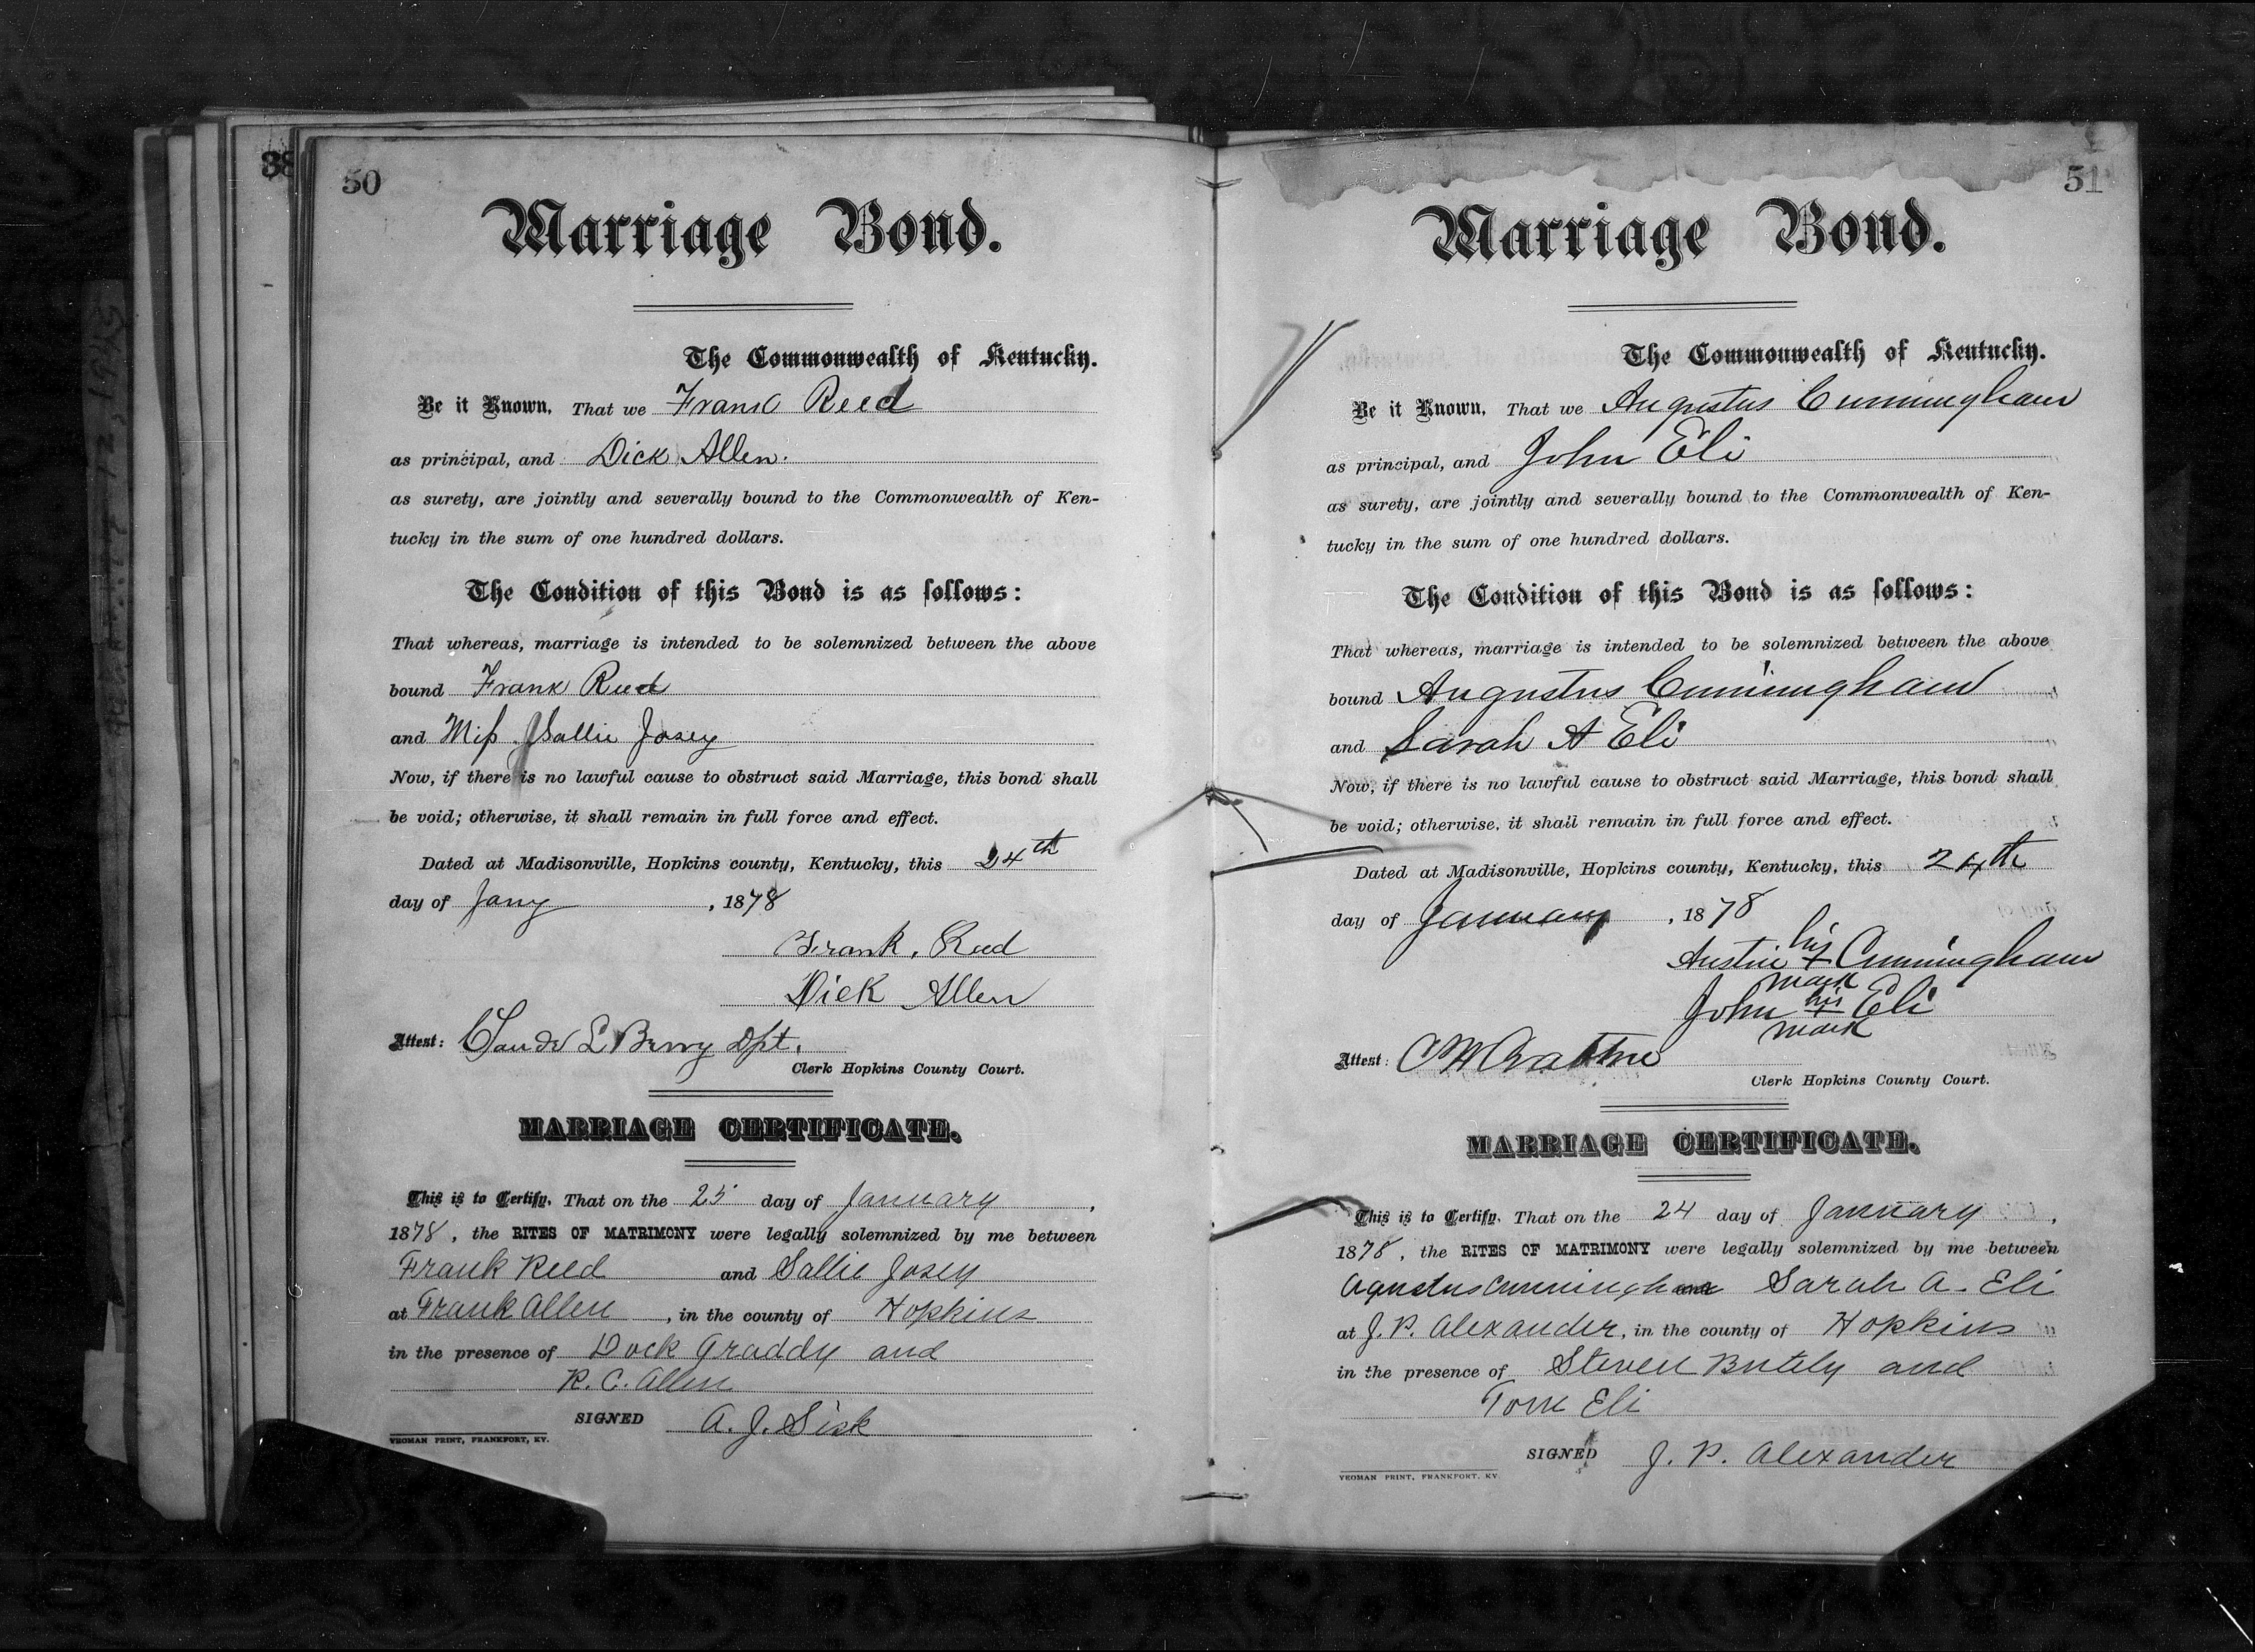 38
50
Marriage Bond.
The Commonwealth of Kentucky.
Be it Known, That we Frank Reed
as principal, and Dick Allen.
as surety, are jointly and severally bound to the Commonwealth of Ken-
tucky in the sum of one hundred dollars.
The Condition of this Bond is as follows:
That whereas, marriage is intended to be solemnized between the above
bound Frank Reed
and Miss Sallie Josey
Now, if there is no lawful cause to obstruct said Marriage, this bond shall
be void; otherwise, it shall remain in full force and effect.
Dated at Madisonville, Hopkins county, Kentucky, this 24th
day of Jany, 1878
Frank. Reed
Dick Allen
Attest: Claude L Berry Dpt.
Clerk Hopkins County Court.
MARRIAGE CERTIFICATE.
This is to Certify, That on the 25 day of January,
1878, the RITES OF MATRIMONY were legally solemnized by me between
Frank Reed and Sallie Josey
at Frank Allen, in the county of Hopkins
in the presence of Dock Graddy and
R. C. Allen
SIGNED A. J. Sisk
YEOMAN PRINT, FRANKFORT, KY.
51
Marriage Bond.
The Commonwealth of Kentucky.
Be it Known, That we Augustus Cunningham
as principal, and John Eli
as surety, are jointly and severally bound to the Commonwealth of Ken-
tucky in the sum of one hundred dollars.
The Condition of this Bond is as follows:
That whereas, marriage is intended to be solemnized between the above
bound Augustus Cunningham
and Sarah A Eli
Now, if there is no lawful cause to obstruct said Marriage, this bond shall
be void; otherwise, it shall remain in full force and effect.
Dated at Madisonville, Hopkins county, Kentucky, this 24th
day of January, 1878
his
Austin + Cunningham
mark
his
John + Eli
mark
Attest:
Clerk Hopkins County Court.
MARRIAGE CERTIFICATE.
This is to Certify, That on the 24 day of January,
1878, the RITES OF MATRIMONY were legally solemnized by me between
Agustus Cunningham Sarah A. Eli
at J. P. Alexander, in the county of Hopkins
in the presence of Steven and
Tom Eli
SIGNED J. P. Alexander
YEOMAN PRINT, FRANKFORT, KY